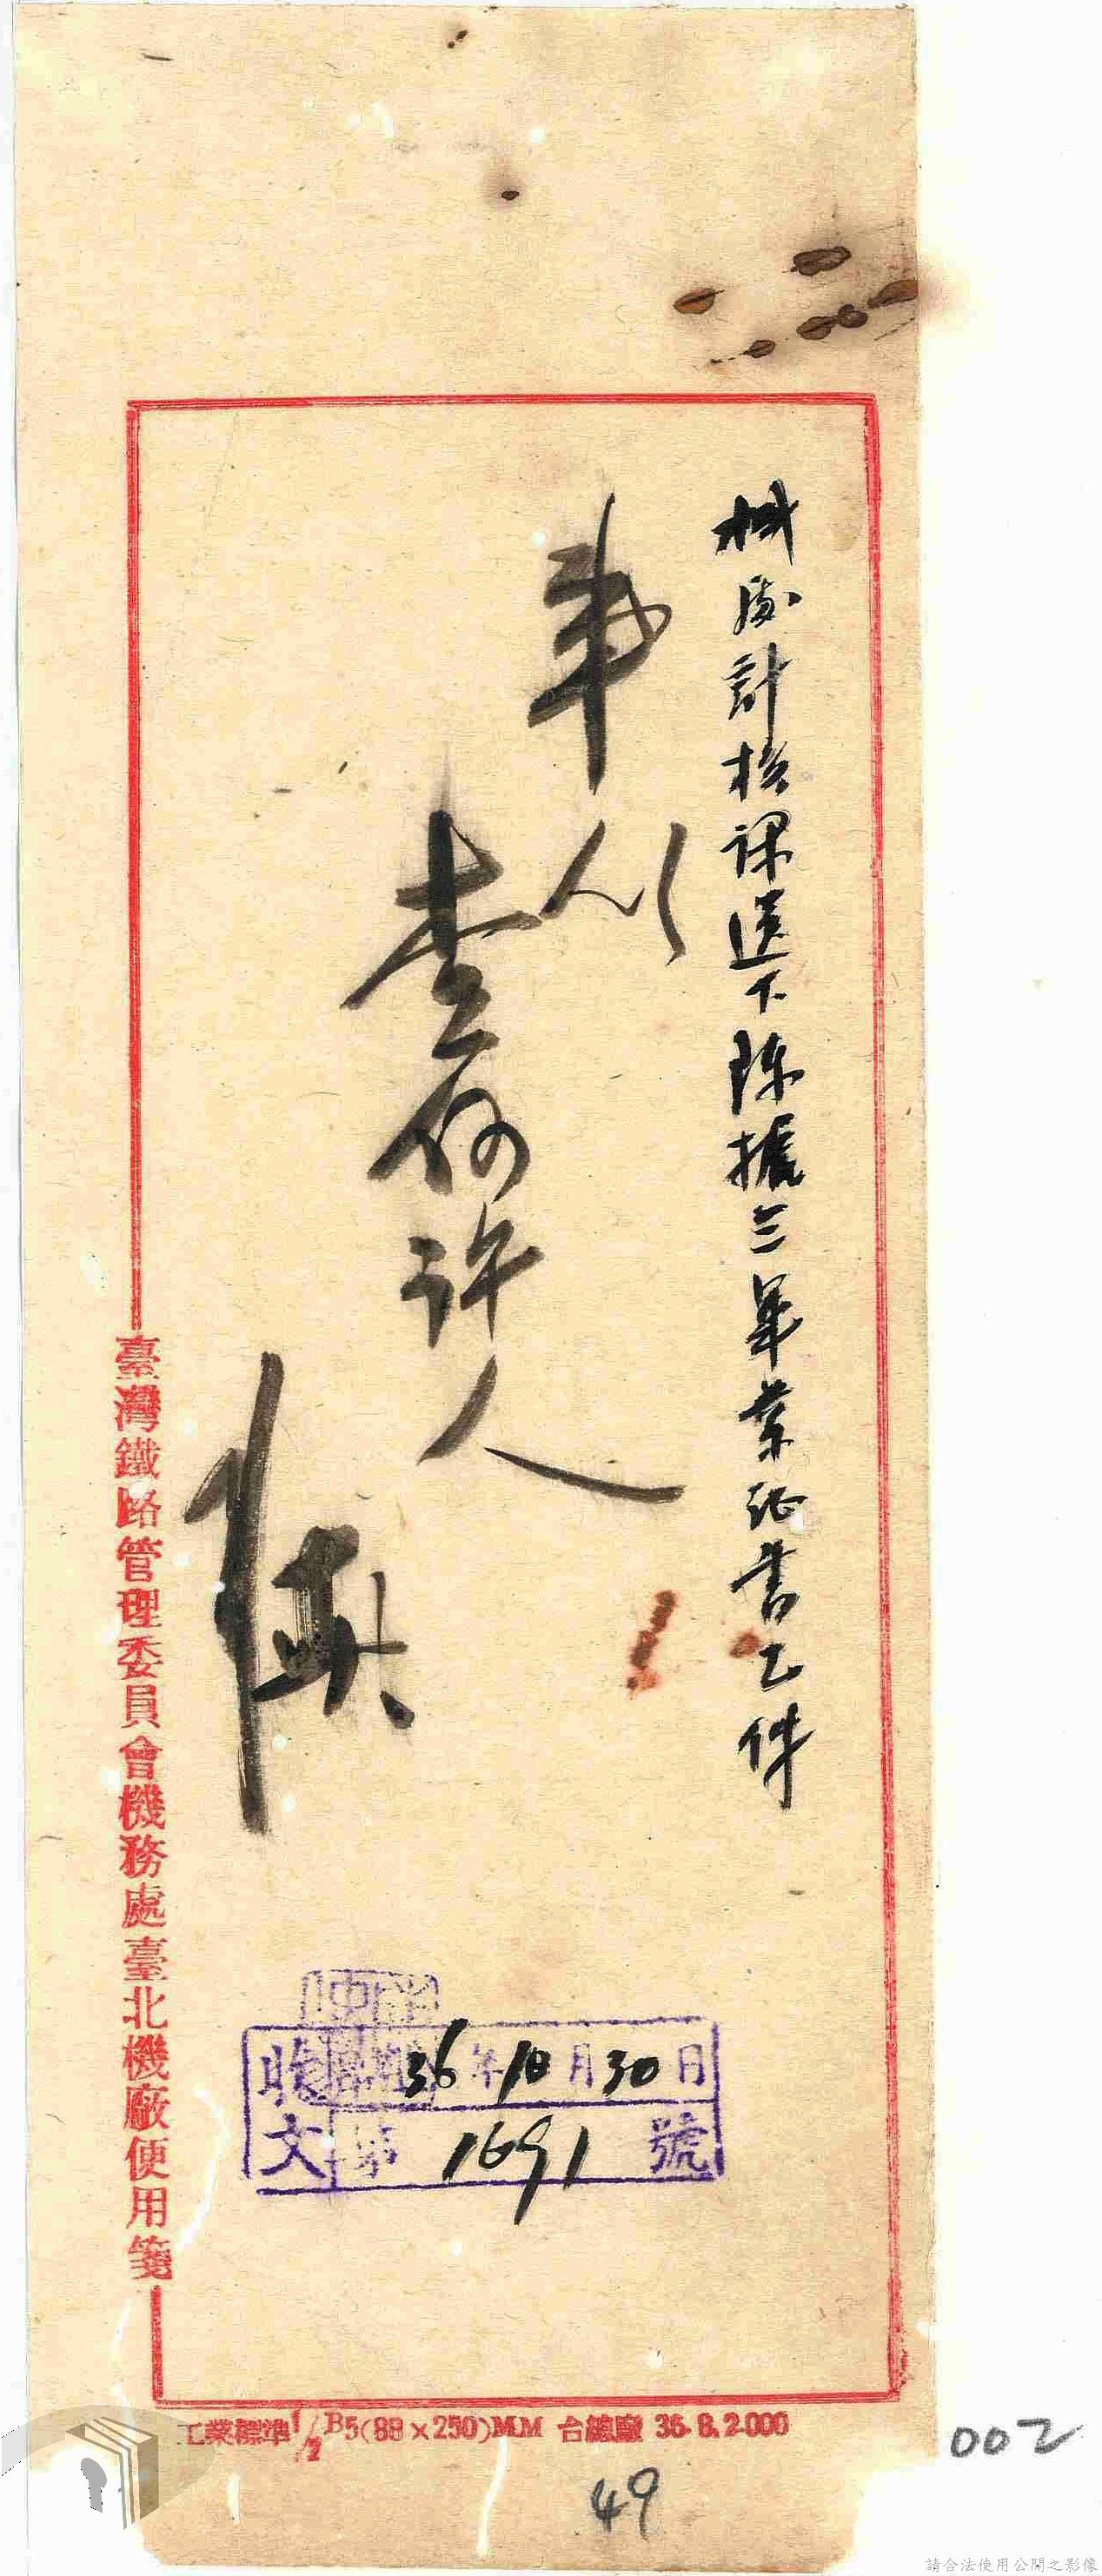 械處計核課送下陳振三畢業証書乙件
事以
查何許人
陳
臺灣鐵路管理委員會機務處臺北機廠便用箋
收文 36年10月30日
第1691號
工業標準1/2B5(88×250)MM 台總廠 36.8.2.000
49
002
請合法使用公開之影像